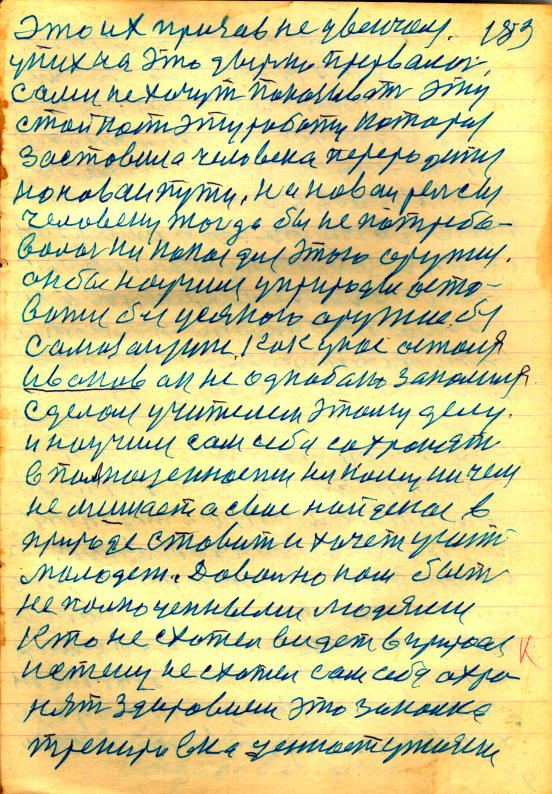 Это их призыв не увенчал. 183
у них на это двирно прервалос,
сами не хочут показыват эту
стойкост эту работу которая
заставила человека переродитця
на новай пути, на новаи релсы
человеку тогда бы не потребо-
валос ни какая для этого оружия.
он бы научился у природы осто-
вотся бы у всякого оружие бы
самозащите. Как у нас остался
Иванов он не однобако закалился
сделали учителем этому делу.
и научил сам себя сохронят
в полноценности ни кому ни чем
не мишает а свое найденое в
природе ставит и хочет учит
молодеж. Довольно нам быт
не полноценными людями
Кто не схотел видет в природе К
истену не схотел сам себя охро-
нят здоровием это закалка
тренировка ценност учения